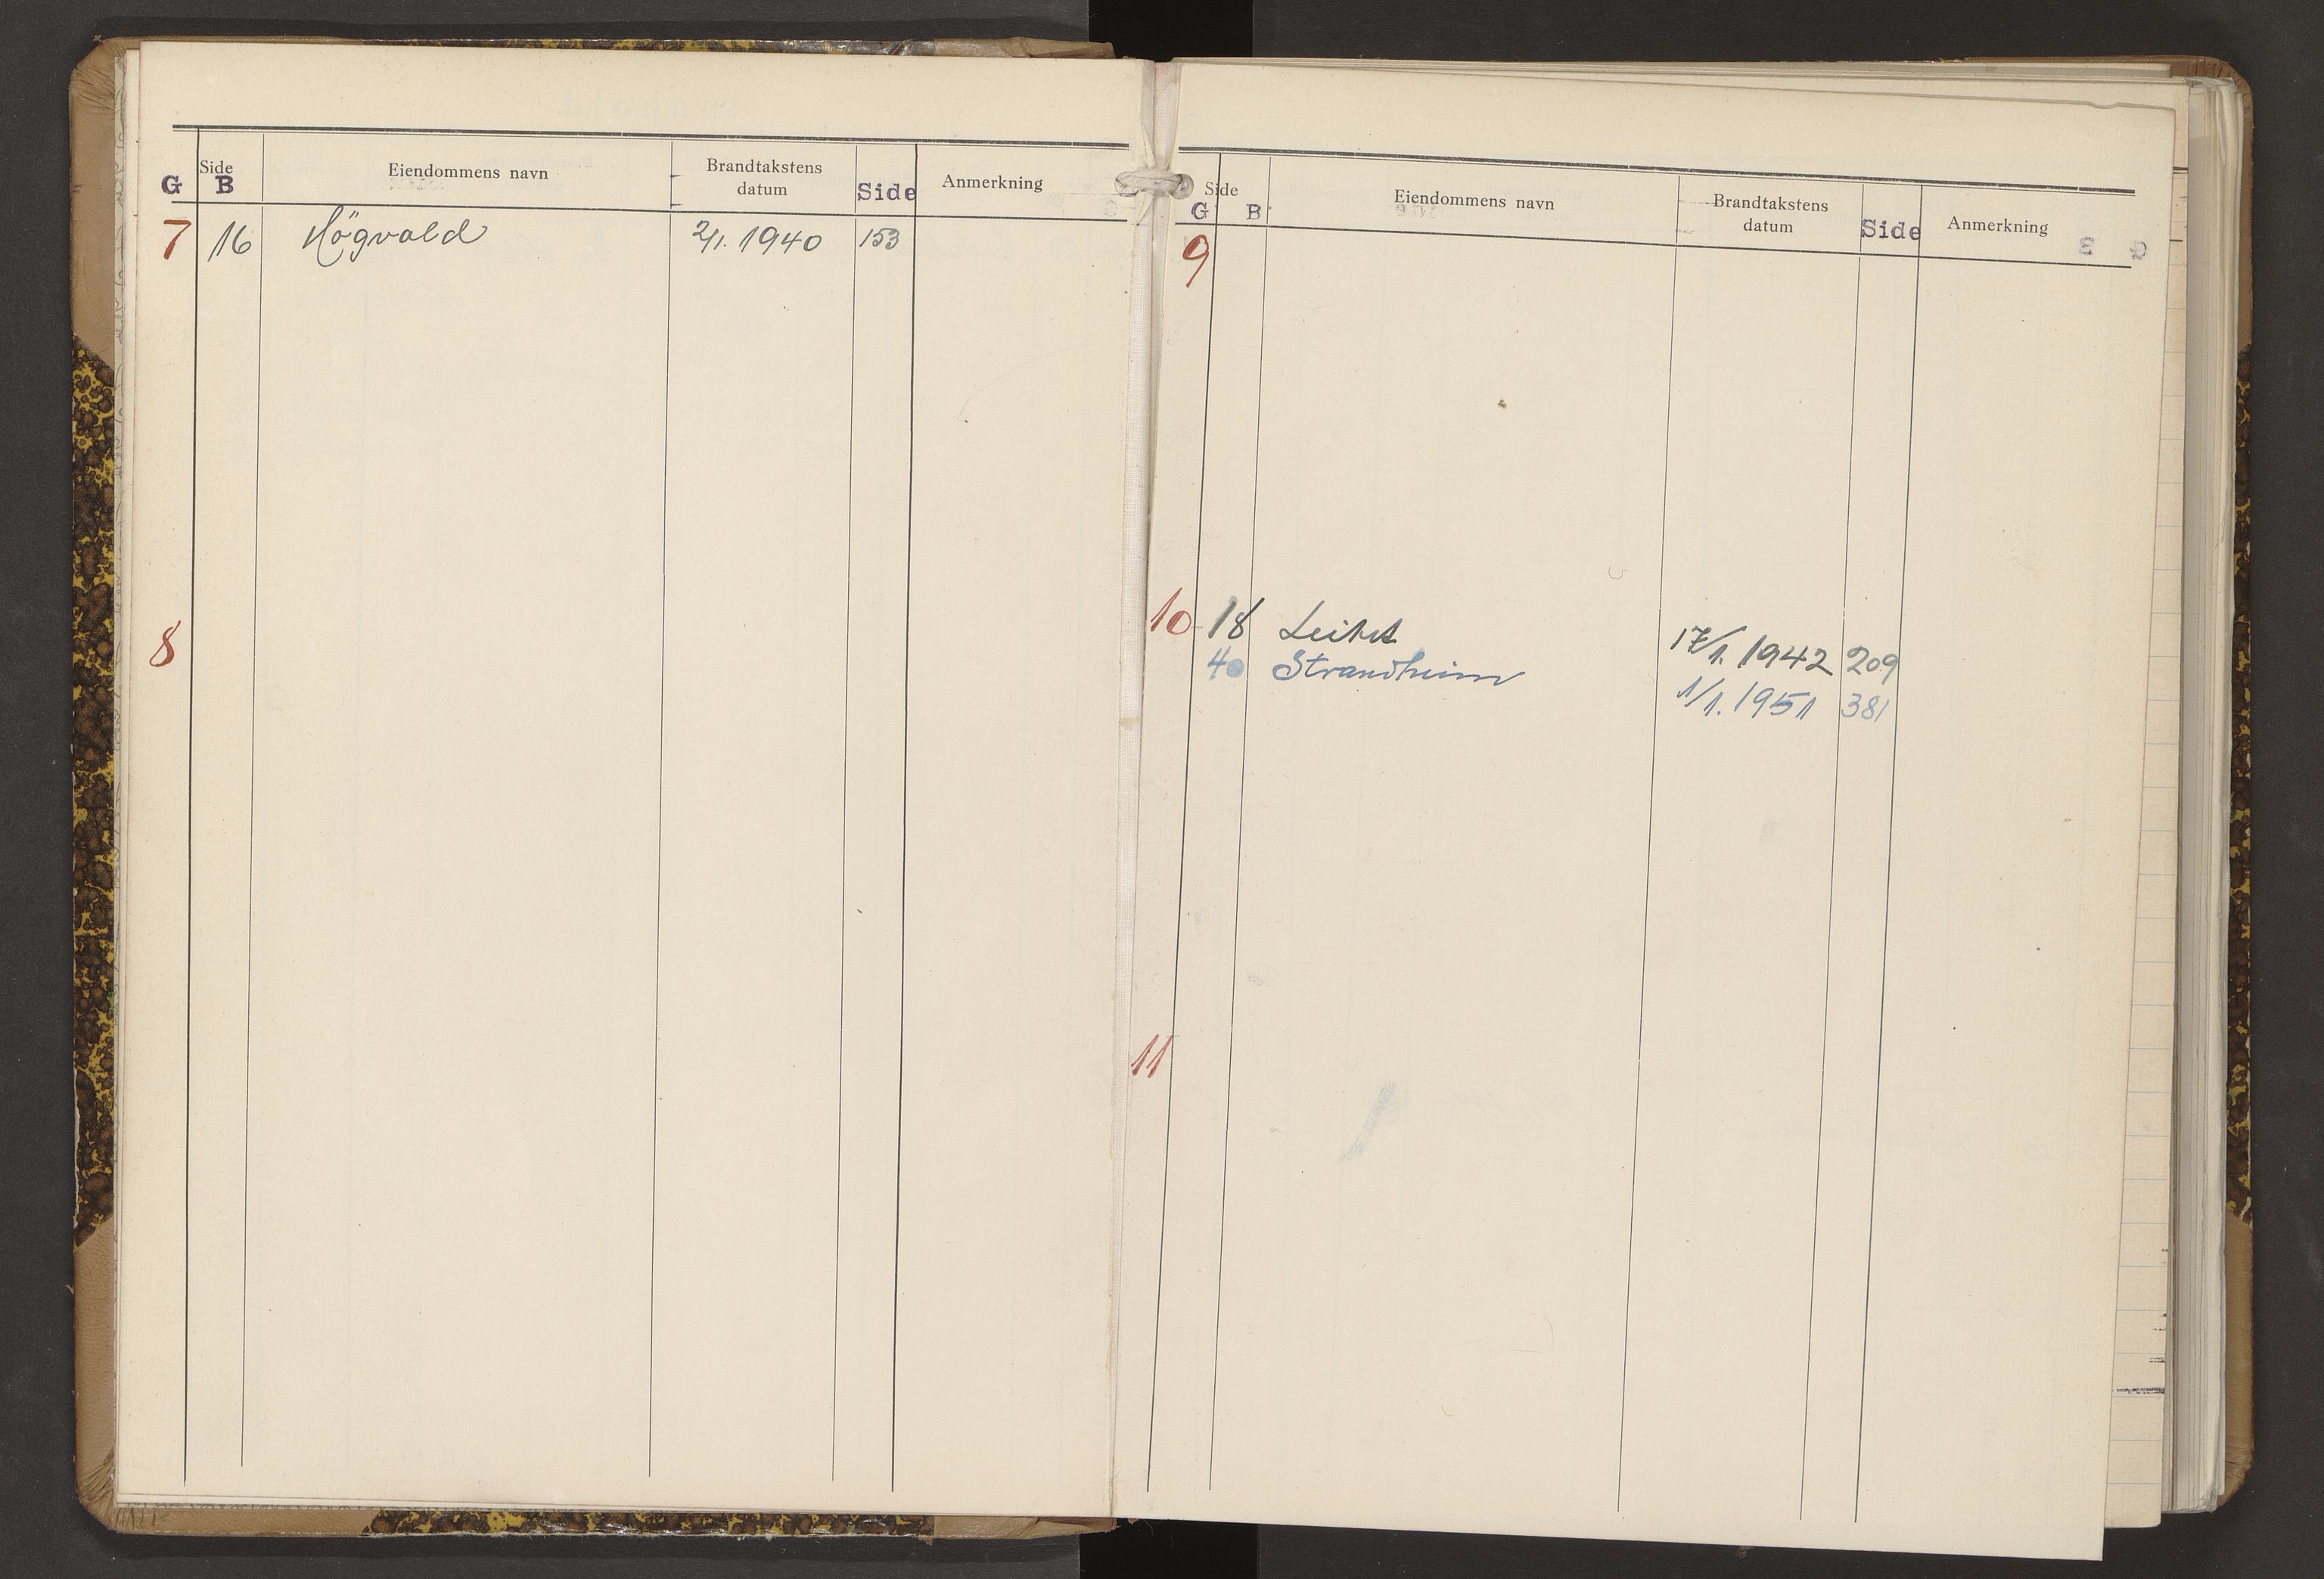 Side
G B Eiendommens navn Brandtakstens datum Side Anmerkning
7 16 Högvold 2/1. 1940 153
8
Side
G B Eiendommens navn Brandtakstens datum Side Anmerkning
9
10 18 17/1. 1942 209
40 Strandheim 1/1. 1951 381
11